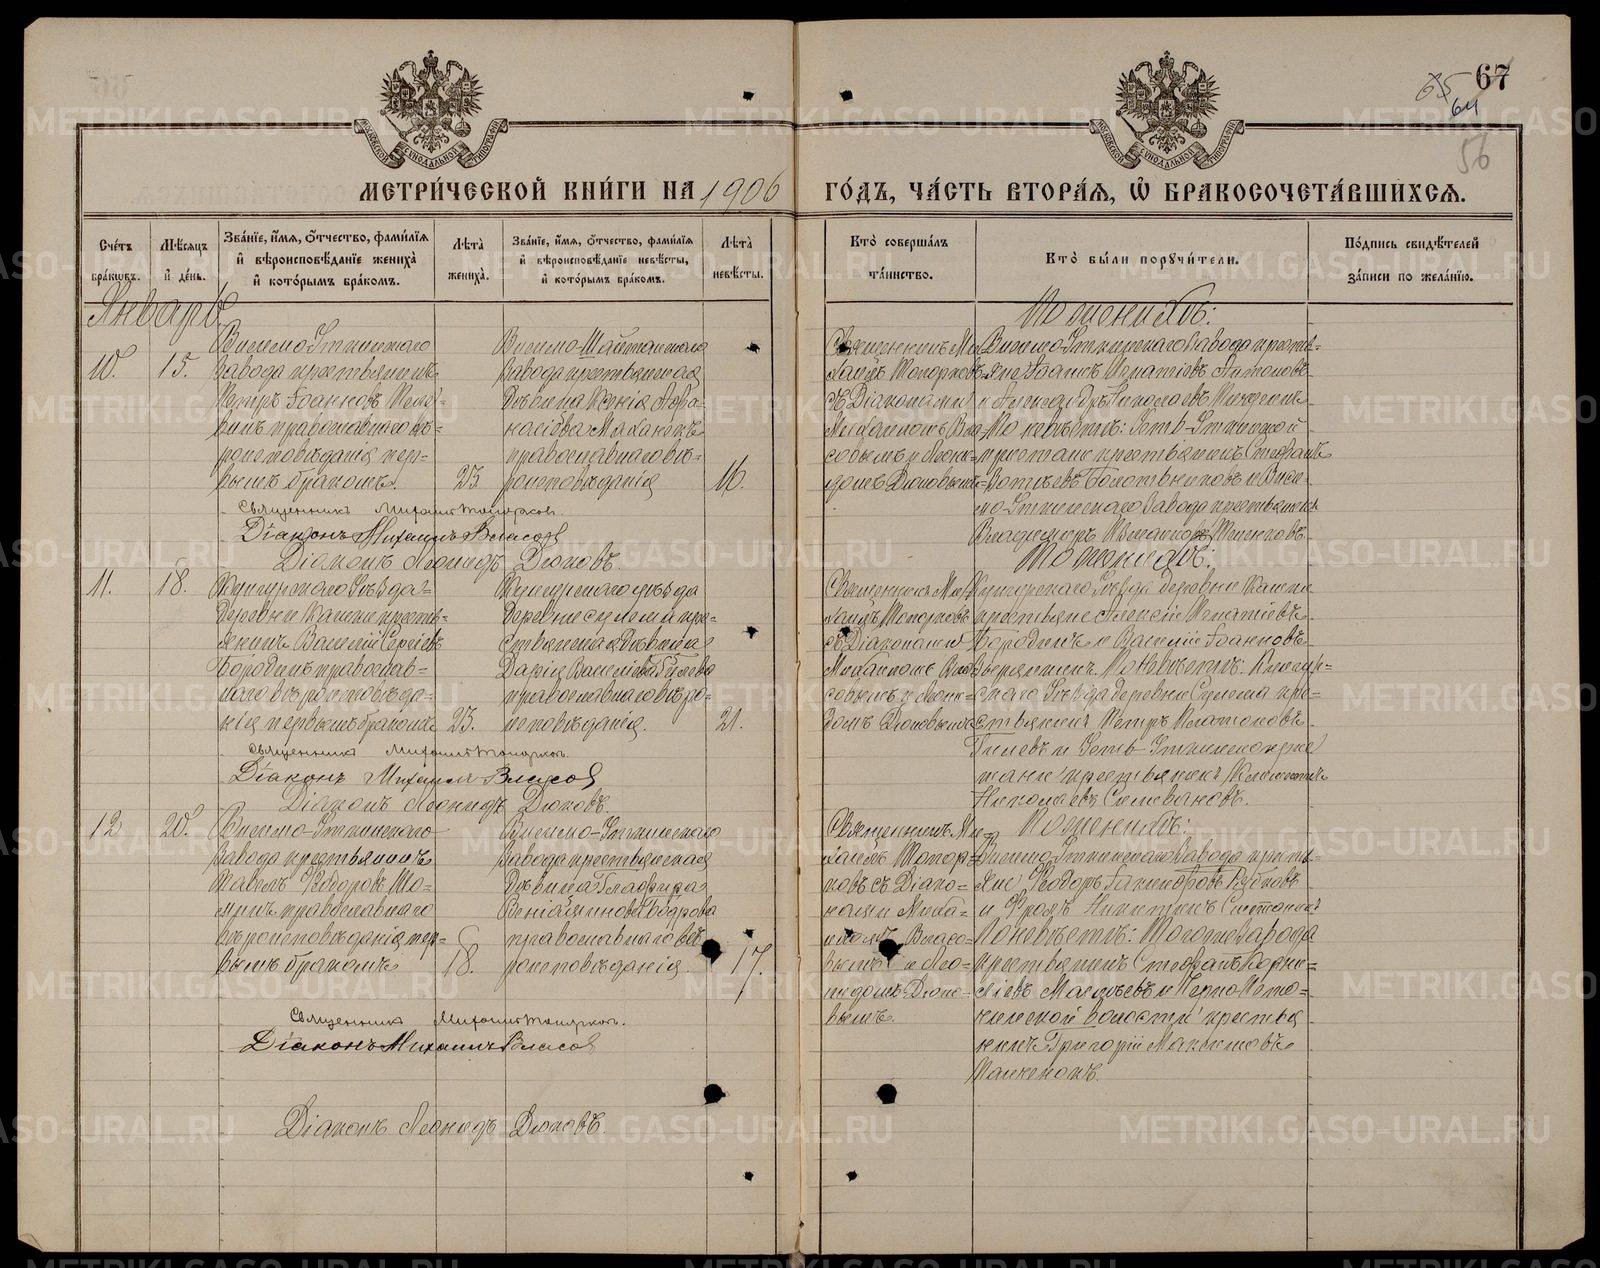 67
65
64
56
МОСКОВСКОЙ СѴНОДАЛЬНОЙ ТИПОГРАФІИ
МОСКОВСКОЙ СѴНОДАЛЬНОЙ ТИПОГРАФІИ
МЕТРИ́ЧЕСКОЙ КНИ́ГИ НА 1906 ГО́ДЪ, ЧА́СТЬ ВТОРА́Я, Ѡ БРАКОСОЧЕТА́ВШИХСЯ.
Сче́тъ бра́кѡвъ.
Мѣ́сяцъ и҆ де́нь.
Зва́нїе, и҆́мя, ѻ҆́тчество, фами́лїя и҆ вѣроисповѣ́данїе жениха̀ и҆ кото́рымъ бра́комъ.
Лѣта̀ жениха̀.
Зва́нїе, и҆́мя, ѻ҆́тчество, фами́лїя и҆ вѣроисповѣ́данїе невѣ́сты, и҆ кото́рымъ бра́комъ.
Лѣта̀ невѣ́сты.
Кто̀ соверша́лъ та́инство.
Кто̀ бы́ли порꙋчи́тели.
По́дпись свидѣ́телей за́писи по жела́нїю.
Январь
10.
15.
Висимо-Уткинскаго
завода крестьянинъ
Петръ Іоанновъ
православнаго вѣ-
роисповѣданія пер-
вымъ бракомъ.
23
Висимо-Шайтанскаго
завода крестьянская
дѣвица Ксенія
православнаго вѣ-
роисповѣданія
16.
Священникъ Ми-
хаилъ Топорковъ
съ Діаконами
Михаиломъ Вла-
совымъ и Леони-
домъ Дюковымъ
По женихѣ:
Висимо-Уткинскаго завода кресть-
яне Іоаннъ Игнатіевъ
и Александръ Николаевъ
По невѣстѣ: Усть-Уткинской
пристани крестьянинъ Стефанъ
и Виси-
мо-Уткинскаго завода крестьянинъ
Владимиръ
Священникъ Михаилъ Топорковъ.
Діаконъ Михаилъ Власовъ
Діаконъ Леонидъ Дюковъ.
11.
18.
Кунгурскаго уѣзда
деревни кресть-
янинъ Василій Сергіевъ
Бородинъ православ-
наго вѣроисповѣда-
нія первымъ бракомъ
23.
Кунгурскаго уѣзда
деревни Сулема кре-
стьянская дѣвица
Дарія Василіева Гилева
православнаго вѣро-
исповѣданія.
21.
Священникъ Ми-
хаилъ Топорковъ
съ Діаконами
Михаиломъ Вла-
совымъ и Леони-
домъ Дюковымъ
По женихѣ:
Кунгурскаго уѣзда деревни
крестьяне Алексій Игнатіевъ
Бородинъ и Василій Іоанновъ
По невѣстѣ: Кунгур-
скаго уѣзда деревни Сулема кре-
стьянинъ Петръ Платоновъ
Гилевъ и Усть-Уткинской при-
стани крестьянинъ
Николаевъ Селивановъ.
Священникъ Михаилъ Топорковъ.
Діаконъ Михаилъ Власовъ
Діаконъ Леонидъ Дюковъ
12
20.
Висимо-Уткинскаго
завода крестьянинъ
Павелъ Ѳеодоровъ
православнаго
вѣроисповѣданія пер-
вымъ бракомъ
18.
Висимо-Уткинскаго
завода крестьянская
дѣвица Глафира
Веніаминова Бодрова
православнаго вѣ-
роисповѣданія.
17.
Священникъ Ми-
хаилъ Топор-
ковъ съ Діако-
нами Миха-
иломъ Власо-
вымъ и Лео-
нидомъ Дюко-
вымъ.
По женихѣ:
Висимо-Уткинскаго завода кресть-
яне Ѳеодоръ
и Фролъ Никитинъ
По невѣстѣ: Того же завода
крестьянинъ Стефанъ Корни-
ліевъ
волости крестья-
нинъ Григорій Максимовъ
Священникъ Михаилъ Топорковъ.
Діаконъ Михаилъ Власовъ
Діаконъ Леонидъ Дюковъ
METRIKI.GASO-URAL.RU